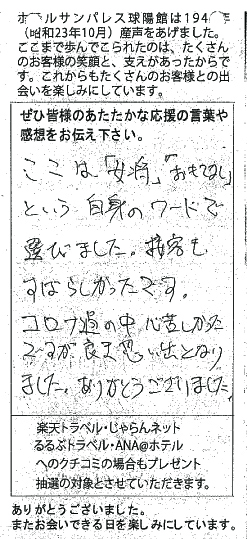 ホ ルサンパレス球陽館は194
(昭和23年10月)産声をあげました。
ここまで歩んでこられたのは、たくさん
のお客様の笑顔と、支えがあったからで
す。これからもたくさんのお客様との出
会いを楽しみにしています。
ぜひ皆様のあたたかな応援の言葉や
感想をお伝え下さい。
ここは「女将」「おもてなし」
という自身のワードで
選びました。接客も
すばらしかったです。
コロナ過の中心苦しかった
ですが良き思い出となり
ました。ありがとうございました
楽天トラベル・じゃらんネット
るるぶトラベル・ANA@ホテル
へのクチコミの場合もプレゼント
抽選の対象とさせていただきます。
ありがとうございました。
またお会いできる日を楽しみにしています。